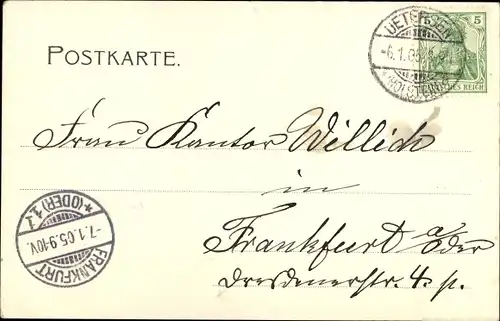 POSTKARTE.
UETERSEN
-6.1.05
(HOLSTEIN)
5
DEUTSCHES REICH
Frau Kantor Willich
in
Frankfurt a/Oder
Dresdenerstr. 4. p.
FRANKFURT
-7.1.05.9-10V.
*(ODER)1.1